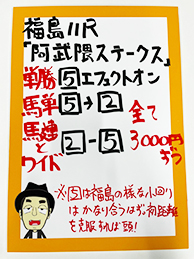 福島11R
「阿武隈ステークス」
単勝 5 エフェクトオン
馬単 5→2 全て
馬連とワイド 2-5 3000円ずつ
※5は福島の様な小回り
はかなり合うはず。初距離
を克服すれば頭!